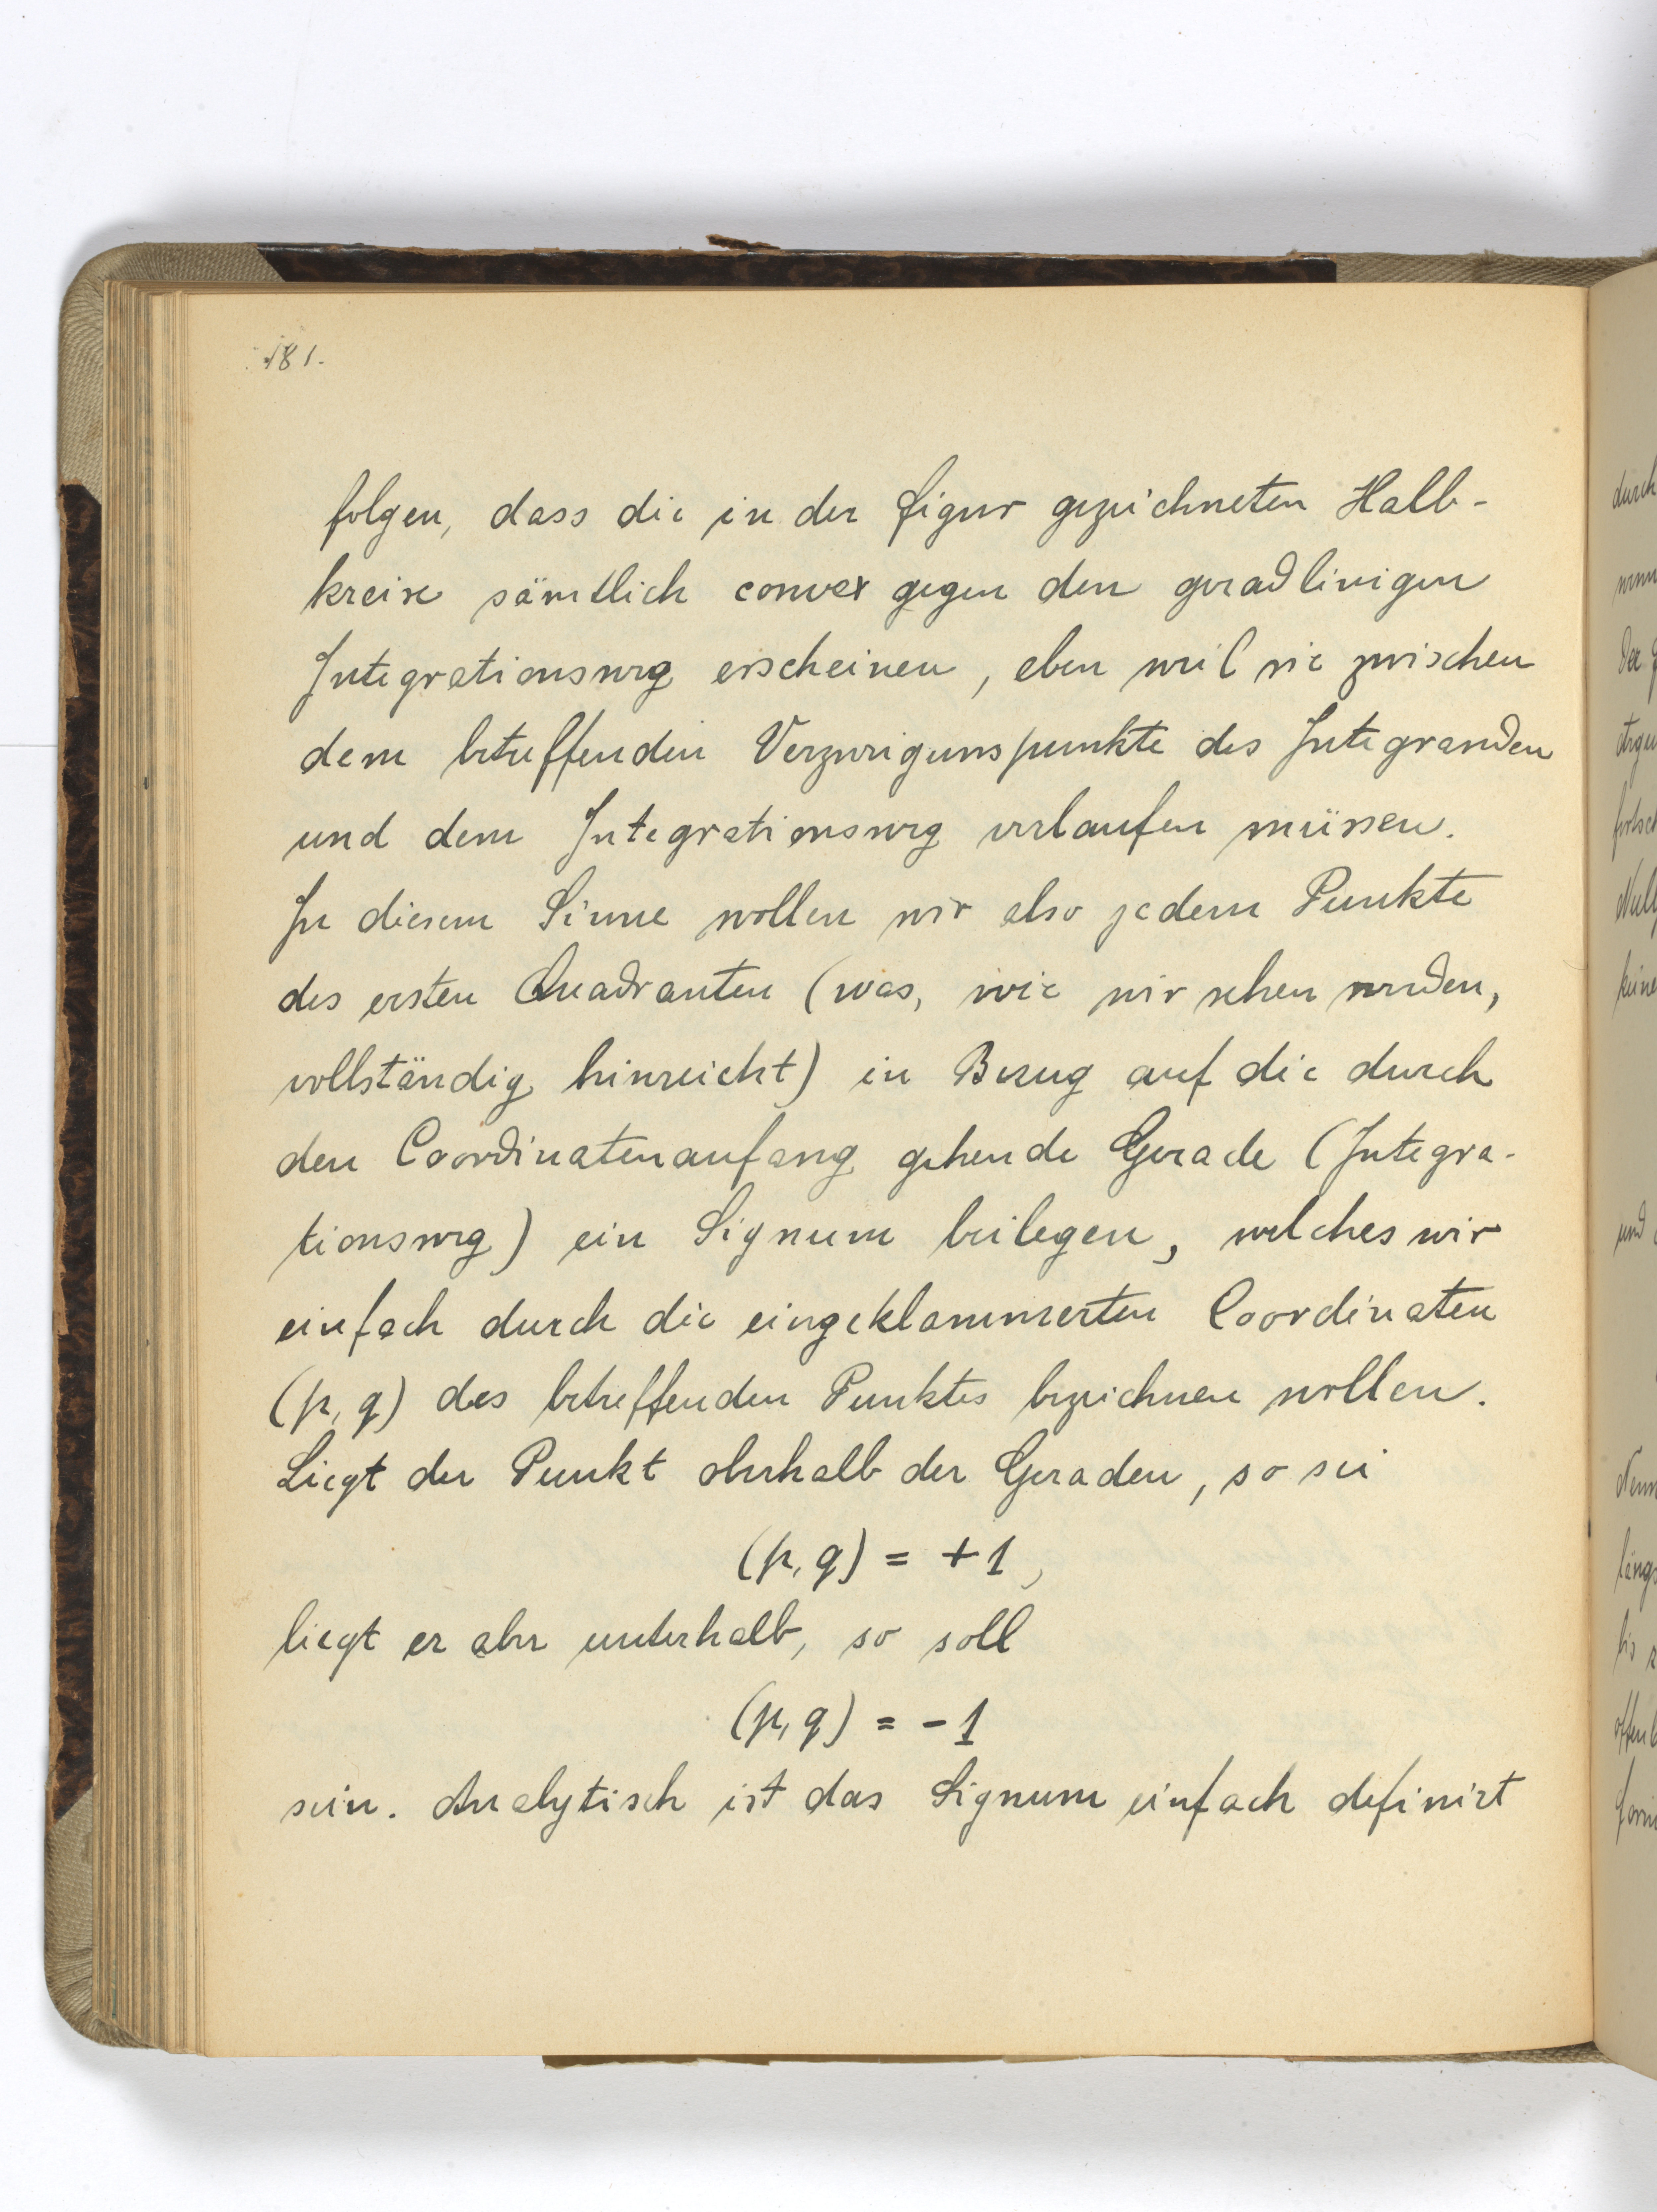 181.
folgen, dass die in der Figur gezeichneten Halb-
kreise sämtlich convex gegen den geradlinigen
Integrationsweg erscheinen, eben weil sie zwischen
dem betreffenden Verzweigunspunkte des Integranden
und dem Integrationsweg verlaufen müssen.
In diesem Sinne wollen wir also jedem Punkte
des ersten Quadranten (was, wie wir sehen werden,
vollständig hinreicht) in Bezug auf die durch
den Coordinatenanfang gehende Gerade (Integra-
tionsweg) ein Signum beilegen, welches wir
einfach durch die eingeklammerten Coordinaten
(p, q) des betreffenden Punktes bezeichnen wollen.
Liegt der Punkt oberhalb der Geraden, so sei
(p, q) = +1,
liegt er aber unterhalb, so soll
(p, q) = -1
sein. Analytisch ist das Signum einfach definirt
durch